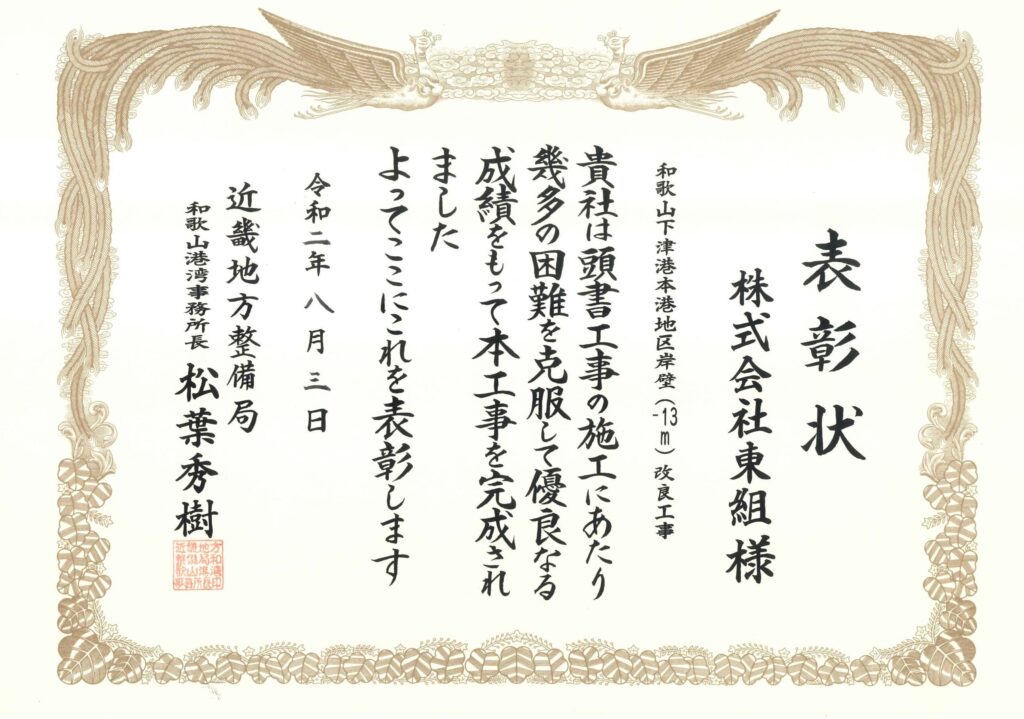 表彰状
株式会社東組様
和歌山下津港本港地区岸壁(-13m)改良工事
貴社は頭書工事の施工にあたり
幾多の困難を克服して優良なる
成績をもって本工事を完成され
ました
よってここにこれを表彰します
令和二年八月三日
近畿地方整備局
和歌山港湾事務所長 松葉秀樹